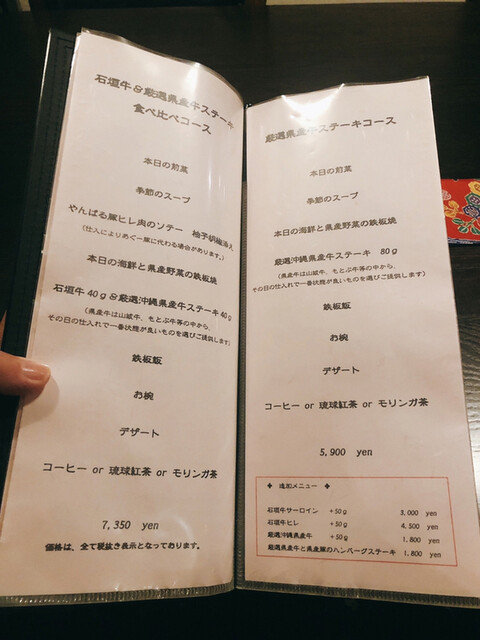 石垣牛&厳選県産牛ステーキ
食べ比べコース
本日の前菜
季節のスープ
やんばる豚ヒレ肉のソテー 柚子胡椒添え
(仕入によりあぐー豚に代わる場合があります。)
本日の海鮮と県産野菜の鉄板焼
石垣牛40g&厳選沖縄県産牛ステーキ40g
(県産牛は山城牛、もとぶ牛等の中から、
その日の仕入れで一番状態が良いものを選びご提供します)
鉄板飯
お椀
デザート
コーヒー or 琉球紅茶 or モリンガ茶
7,350 yen
価格は、全て税抜き表示となっております。
厳選県産牛ステーキコース
本日の前菜
季節のスープ
本日の海鮮と県産野菜の鉄板焼
厳選沖縄県産牛ステーキ 80g
(県産牛は山城牛、もとぶ牛等の中から、
その日の仕入れで一番状態が良いものを選びご提供します)
鉄板飯
お椀
デザート
コーヒー or 琉球紅茶 or モリンガ茶
5,900 yen
◆ 追加メニュー ◆
石垣牛サーロイン +50g 3,000 yen
石垣牛ヒレ +50g 4,500 yen
厳選沖縄県産牛 +50g 1,800 yen
厳選県産牛と県産豚のハンバーグステーキ 1,800 yen